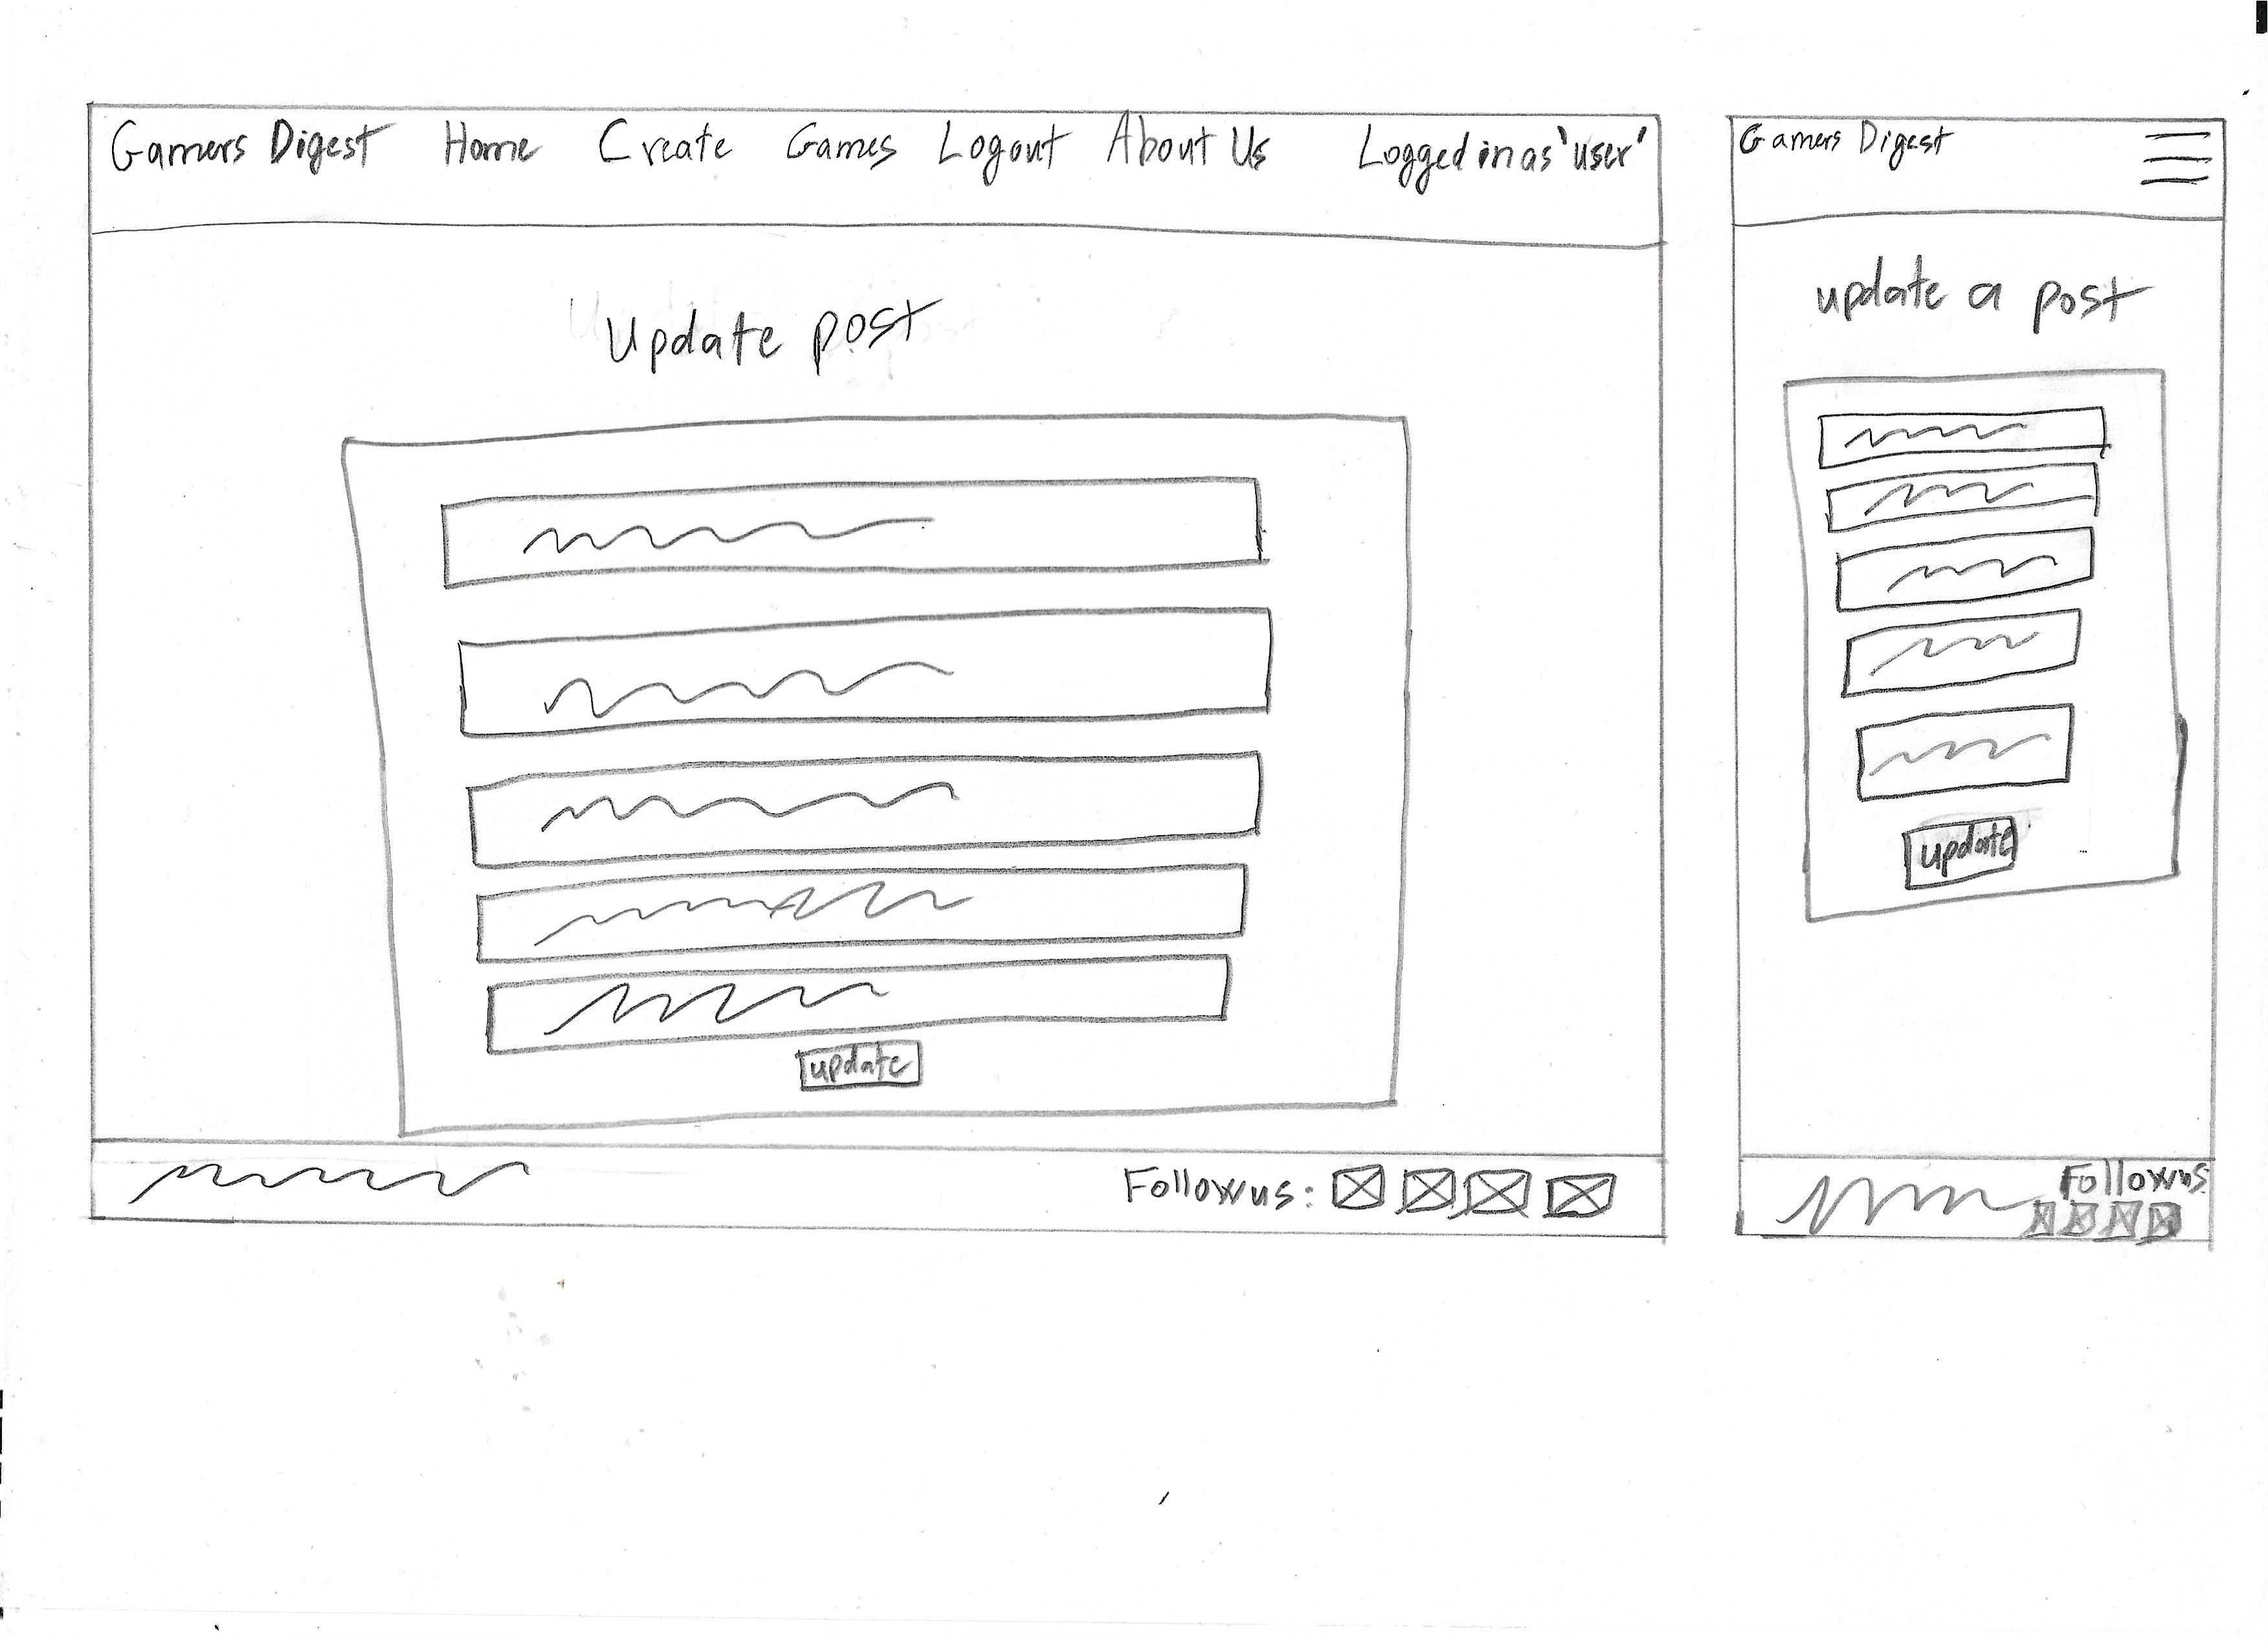 Gamers Digest Home Create Games Logout About Us Logged in as 'user'
Update post
update
Follow us:
Gamers Digest
update a post
update
Follow us